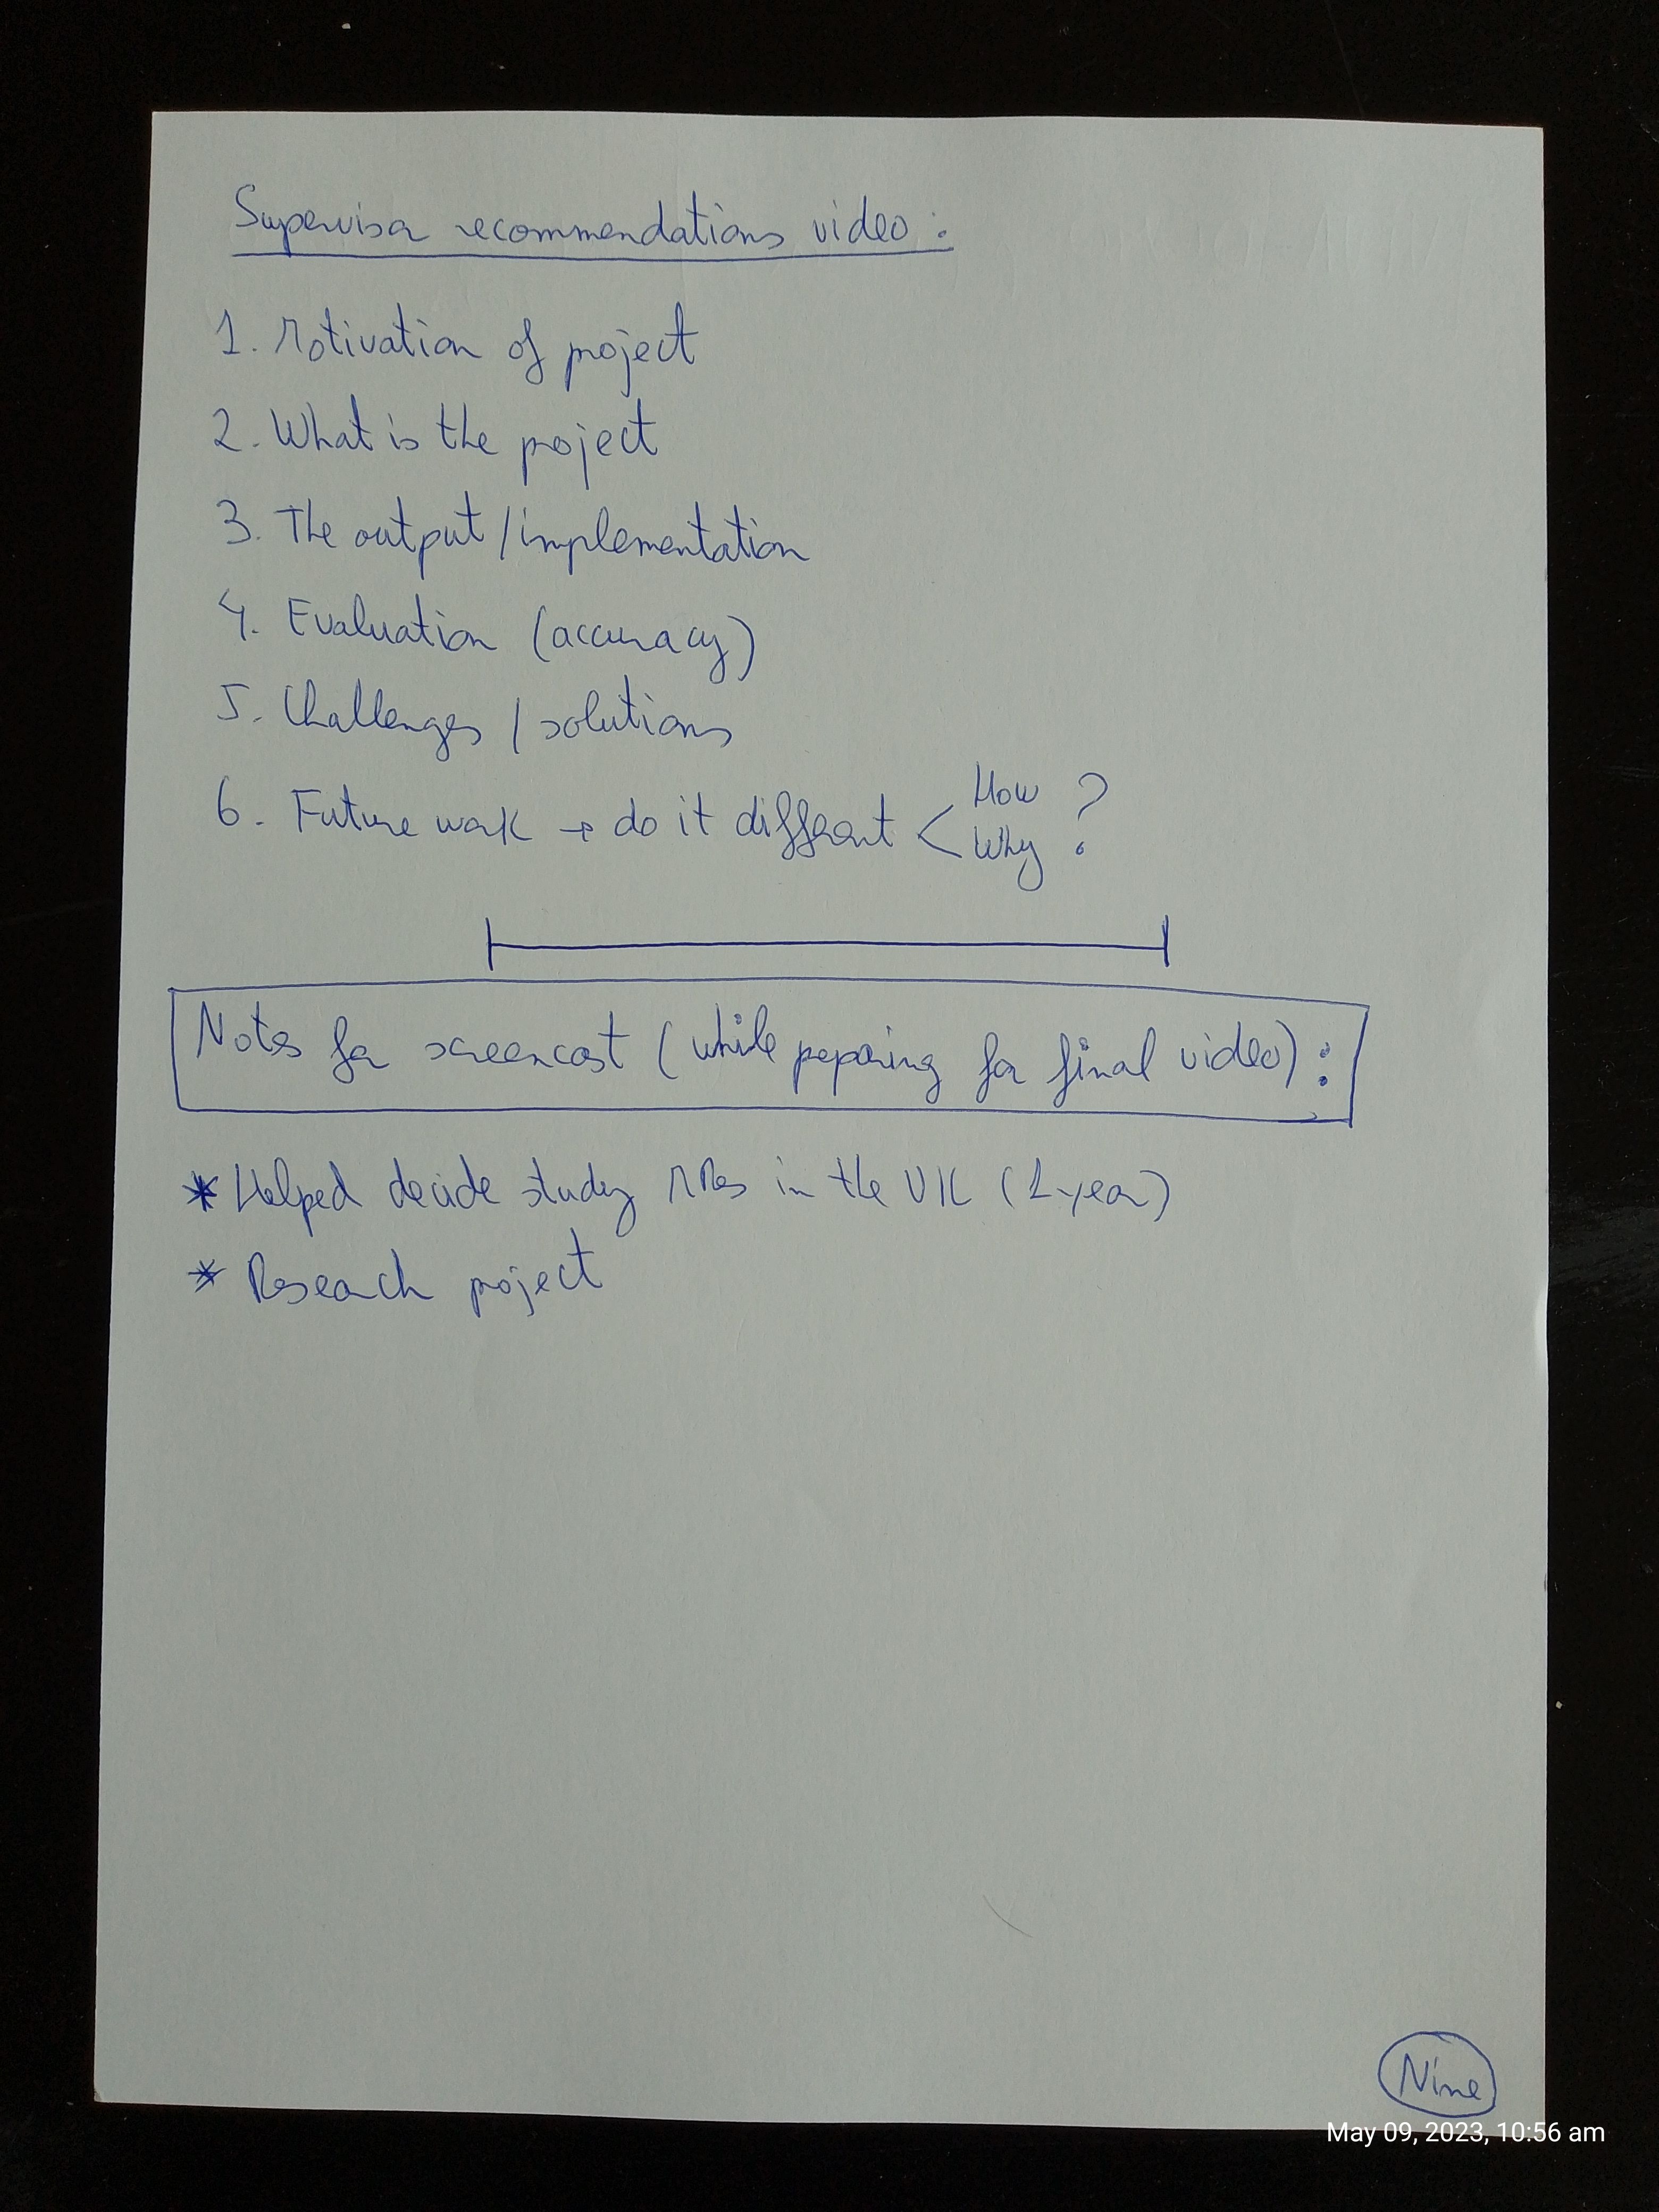 Supervisor recommendations video:
1. Motivation of project
2. What is the project
3. The output/implementation
4. Evaluation (accuracy)
5. Challenges / solutions
6. Future work → do it different < How Why ?
Notes for screencast (while preparing for final video):
* Helped decide study MRes in the UK (1 year)
* Research project
Nine
May 09, 2023, 10:56 am